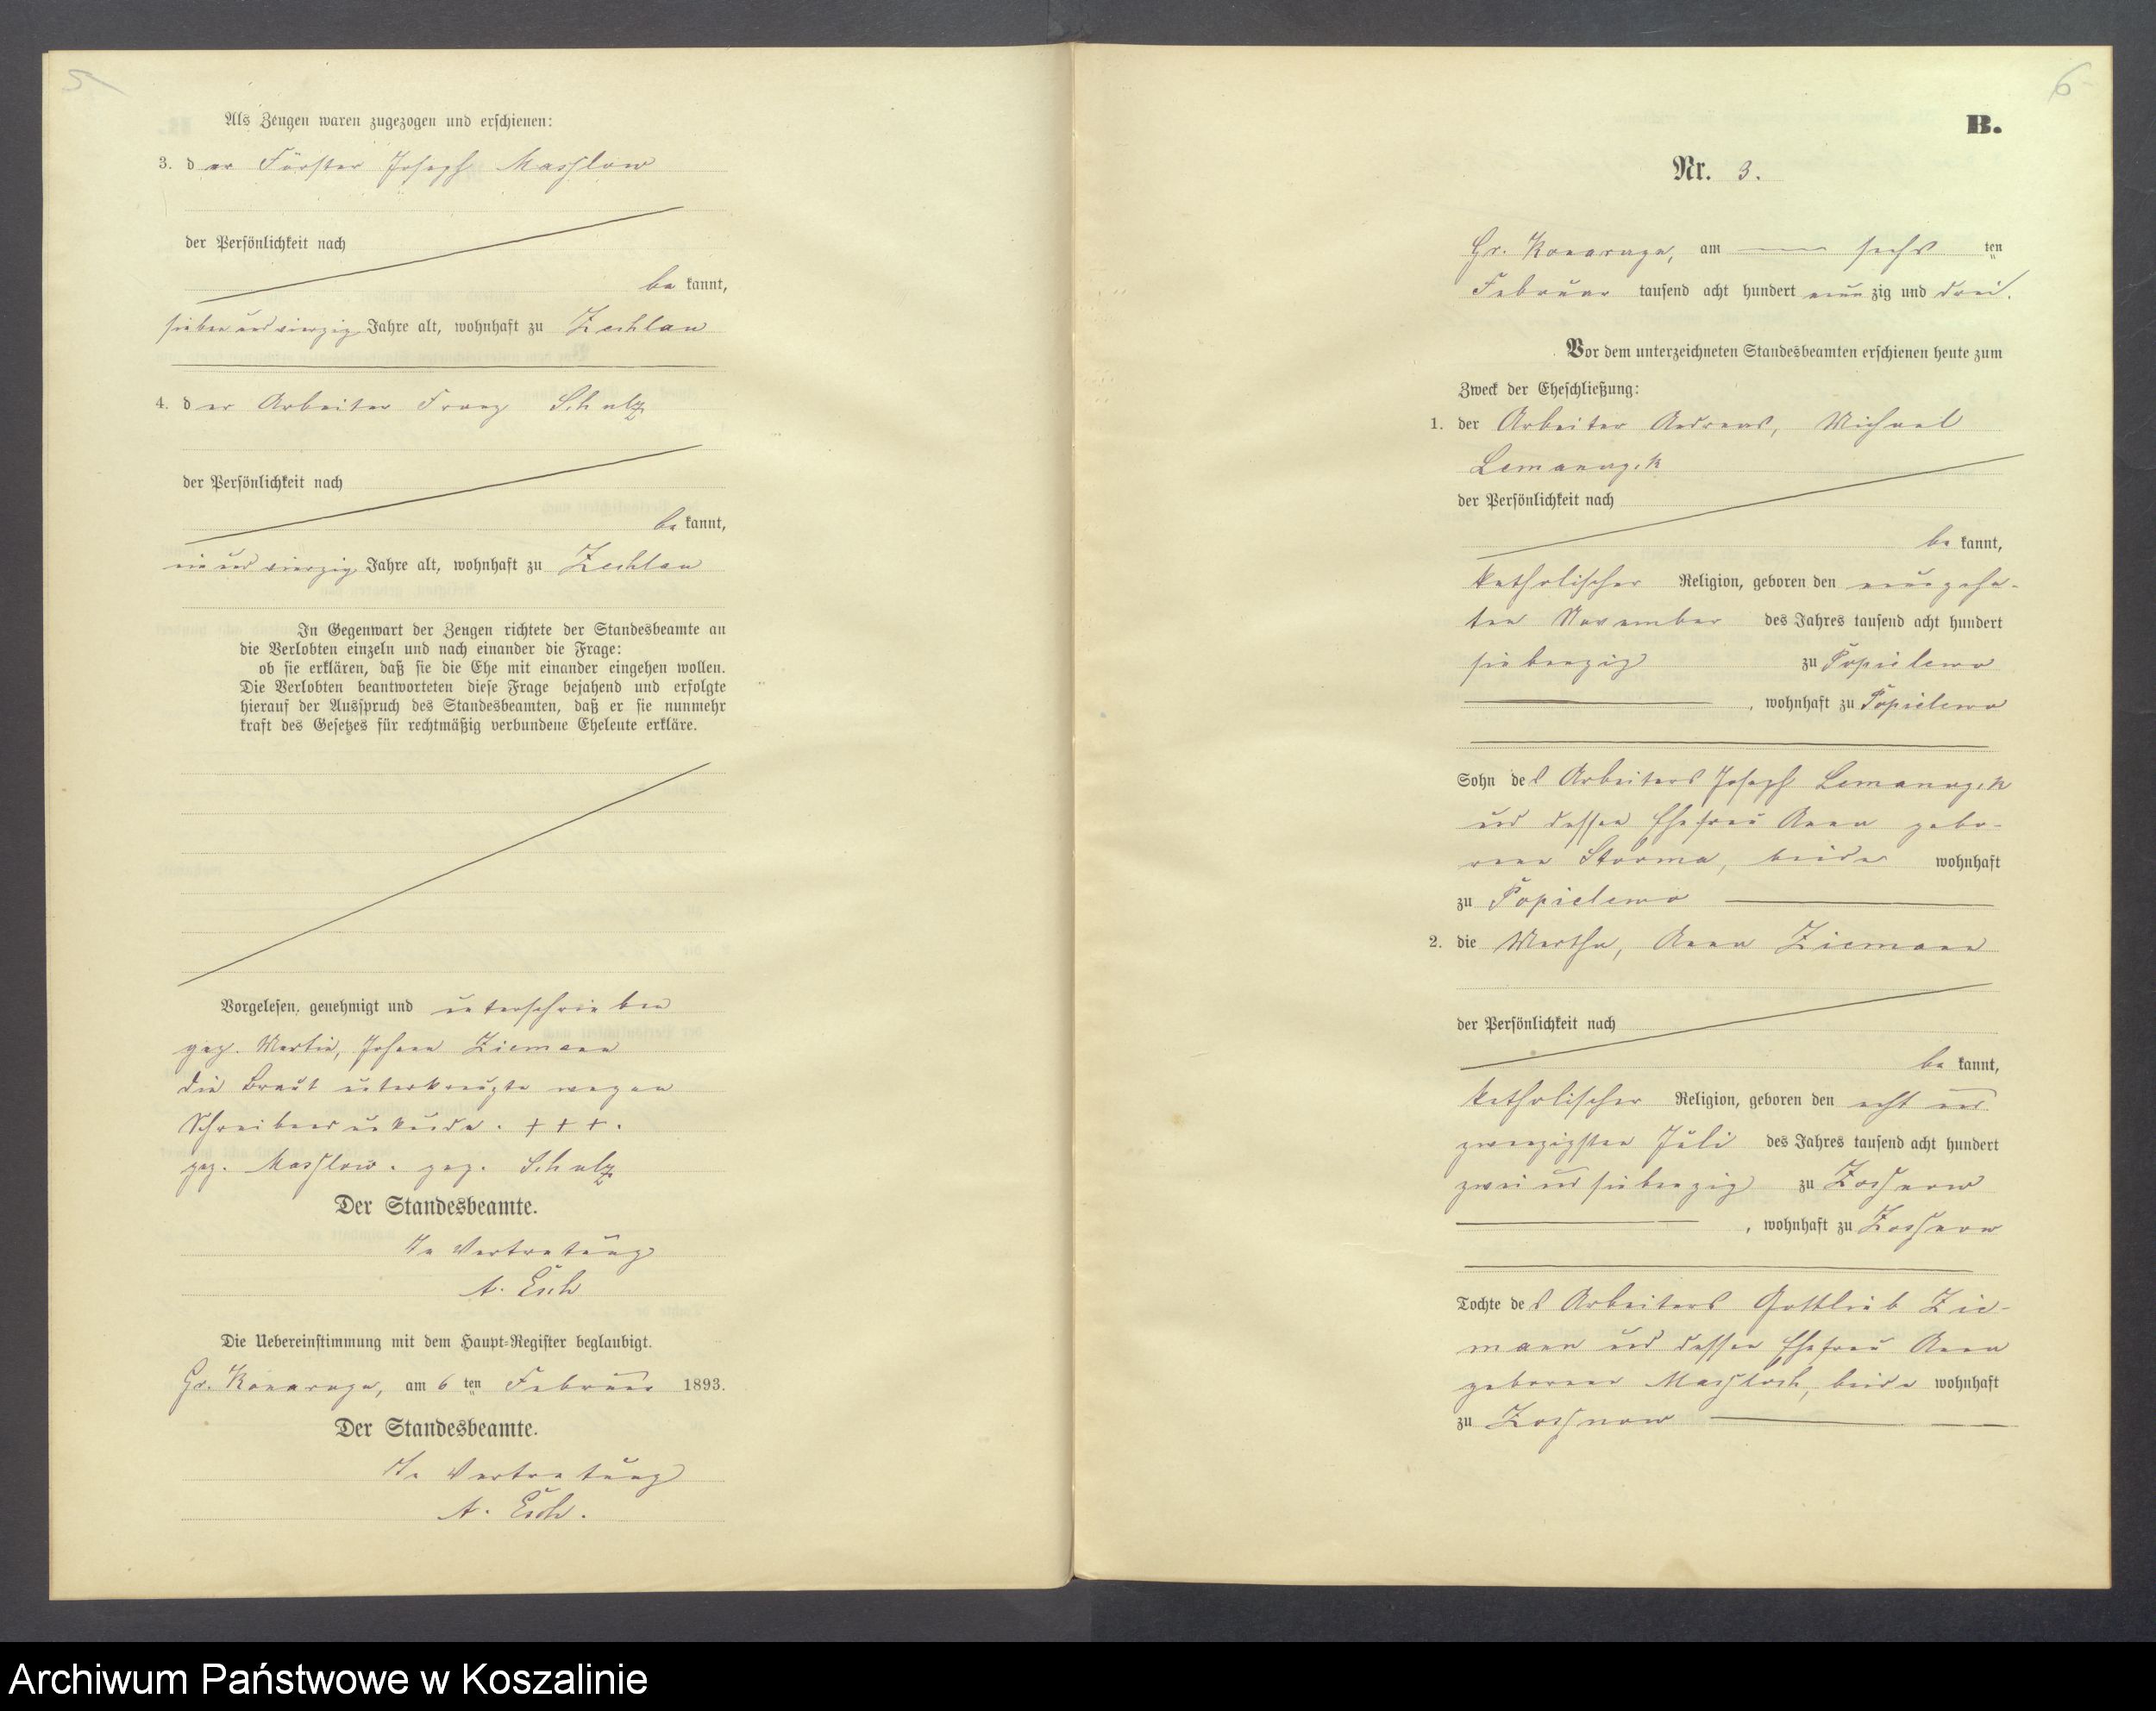 5
Als Zeugen waren zugezogen und erschienen:
3. der Förster Joseph Masslow
der Persönlichkeit nach
be kannt,
sieben und vierzig Jahre alt, wohnhaft zu Zechlau
4. der Arbeiter Franz Schulz
der Persönlichkeit nach
be kannt,
ein und vierzig Jahre alt, wohnhaft zu Zechlau
In Gegenwart der Zeugen richtete der Standesbeamte an
die Verlobten einzeln und nach einander die Frage:
ob sie erklären, daß sie die Ehe mit einander eingehen wollen.
Die Verlobten beantworteten diese Frage bejahend und erfolgte
hierauf der Ausspruch des Standesbeamten, daß er sie nunmehr
kraft des Gesetzes für rechtmäßig verbundene Eheleute erkläre.
Vorgelesen, genehmigt und unterschrieben
gez. Martin, Johann Ziemann
die Braut unterkreuzte wegen
Schreibensunkunde. +++.
gez. Masslow. gez. Schulz
Der Standesbeamte.
In Vertretung
A. Esch
Die Uebereinstimmung mit dem Haupt-Register beglaubigt.
Gr. Konarzyn, am 6 ten Februar 1893.
Der Standesbeamte.
In Vertretung
A. Esch.
6
B.
Nr. 3.
Gr. Konarzyn, am sechs ten
Februar tausend acht hundert neun zig und drei.
Vor dem unterzeichneten Standesbeamten erschienen heute zum
Zweck der Eheschließung:
1. der Arbeiter Andreas, Michael
Lemanczik
der Persönlichkeit nach
be kannt,
katholischer Religion, geboren den neunzehn-
ten November des Jahres tausend acht hundert
siebenzig zu Popielewo
, wohnhaft zu Popielewo
Sohn des Arbeiters Joseph Lemanczik
und dessen Ehefrau Anna gebo-
rene Storma, beide wohnhaft
zu Popielewo
2. die Martha, Anna Ziemann
der Persönlichkeit nach
be kannt,
katholischer Religion, geboren den acht und
zwanzigsten Juli des Jahres tausend acht hundert
zwei und siebenzig zu Zossnow
, wohnhaft zu Zossnow
Tochte des Arbeiters Gottlieb Zie-
mann und dessen Ehefrau Anna
geborene beide wohnhaft
zu Zossnow
Archiwum Państwowe w Koszalinie